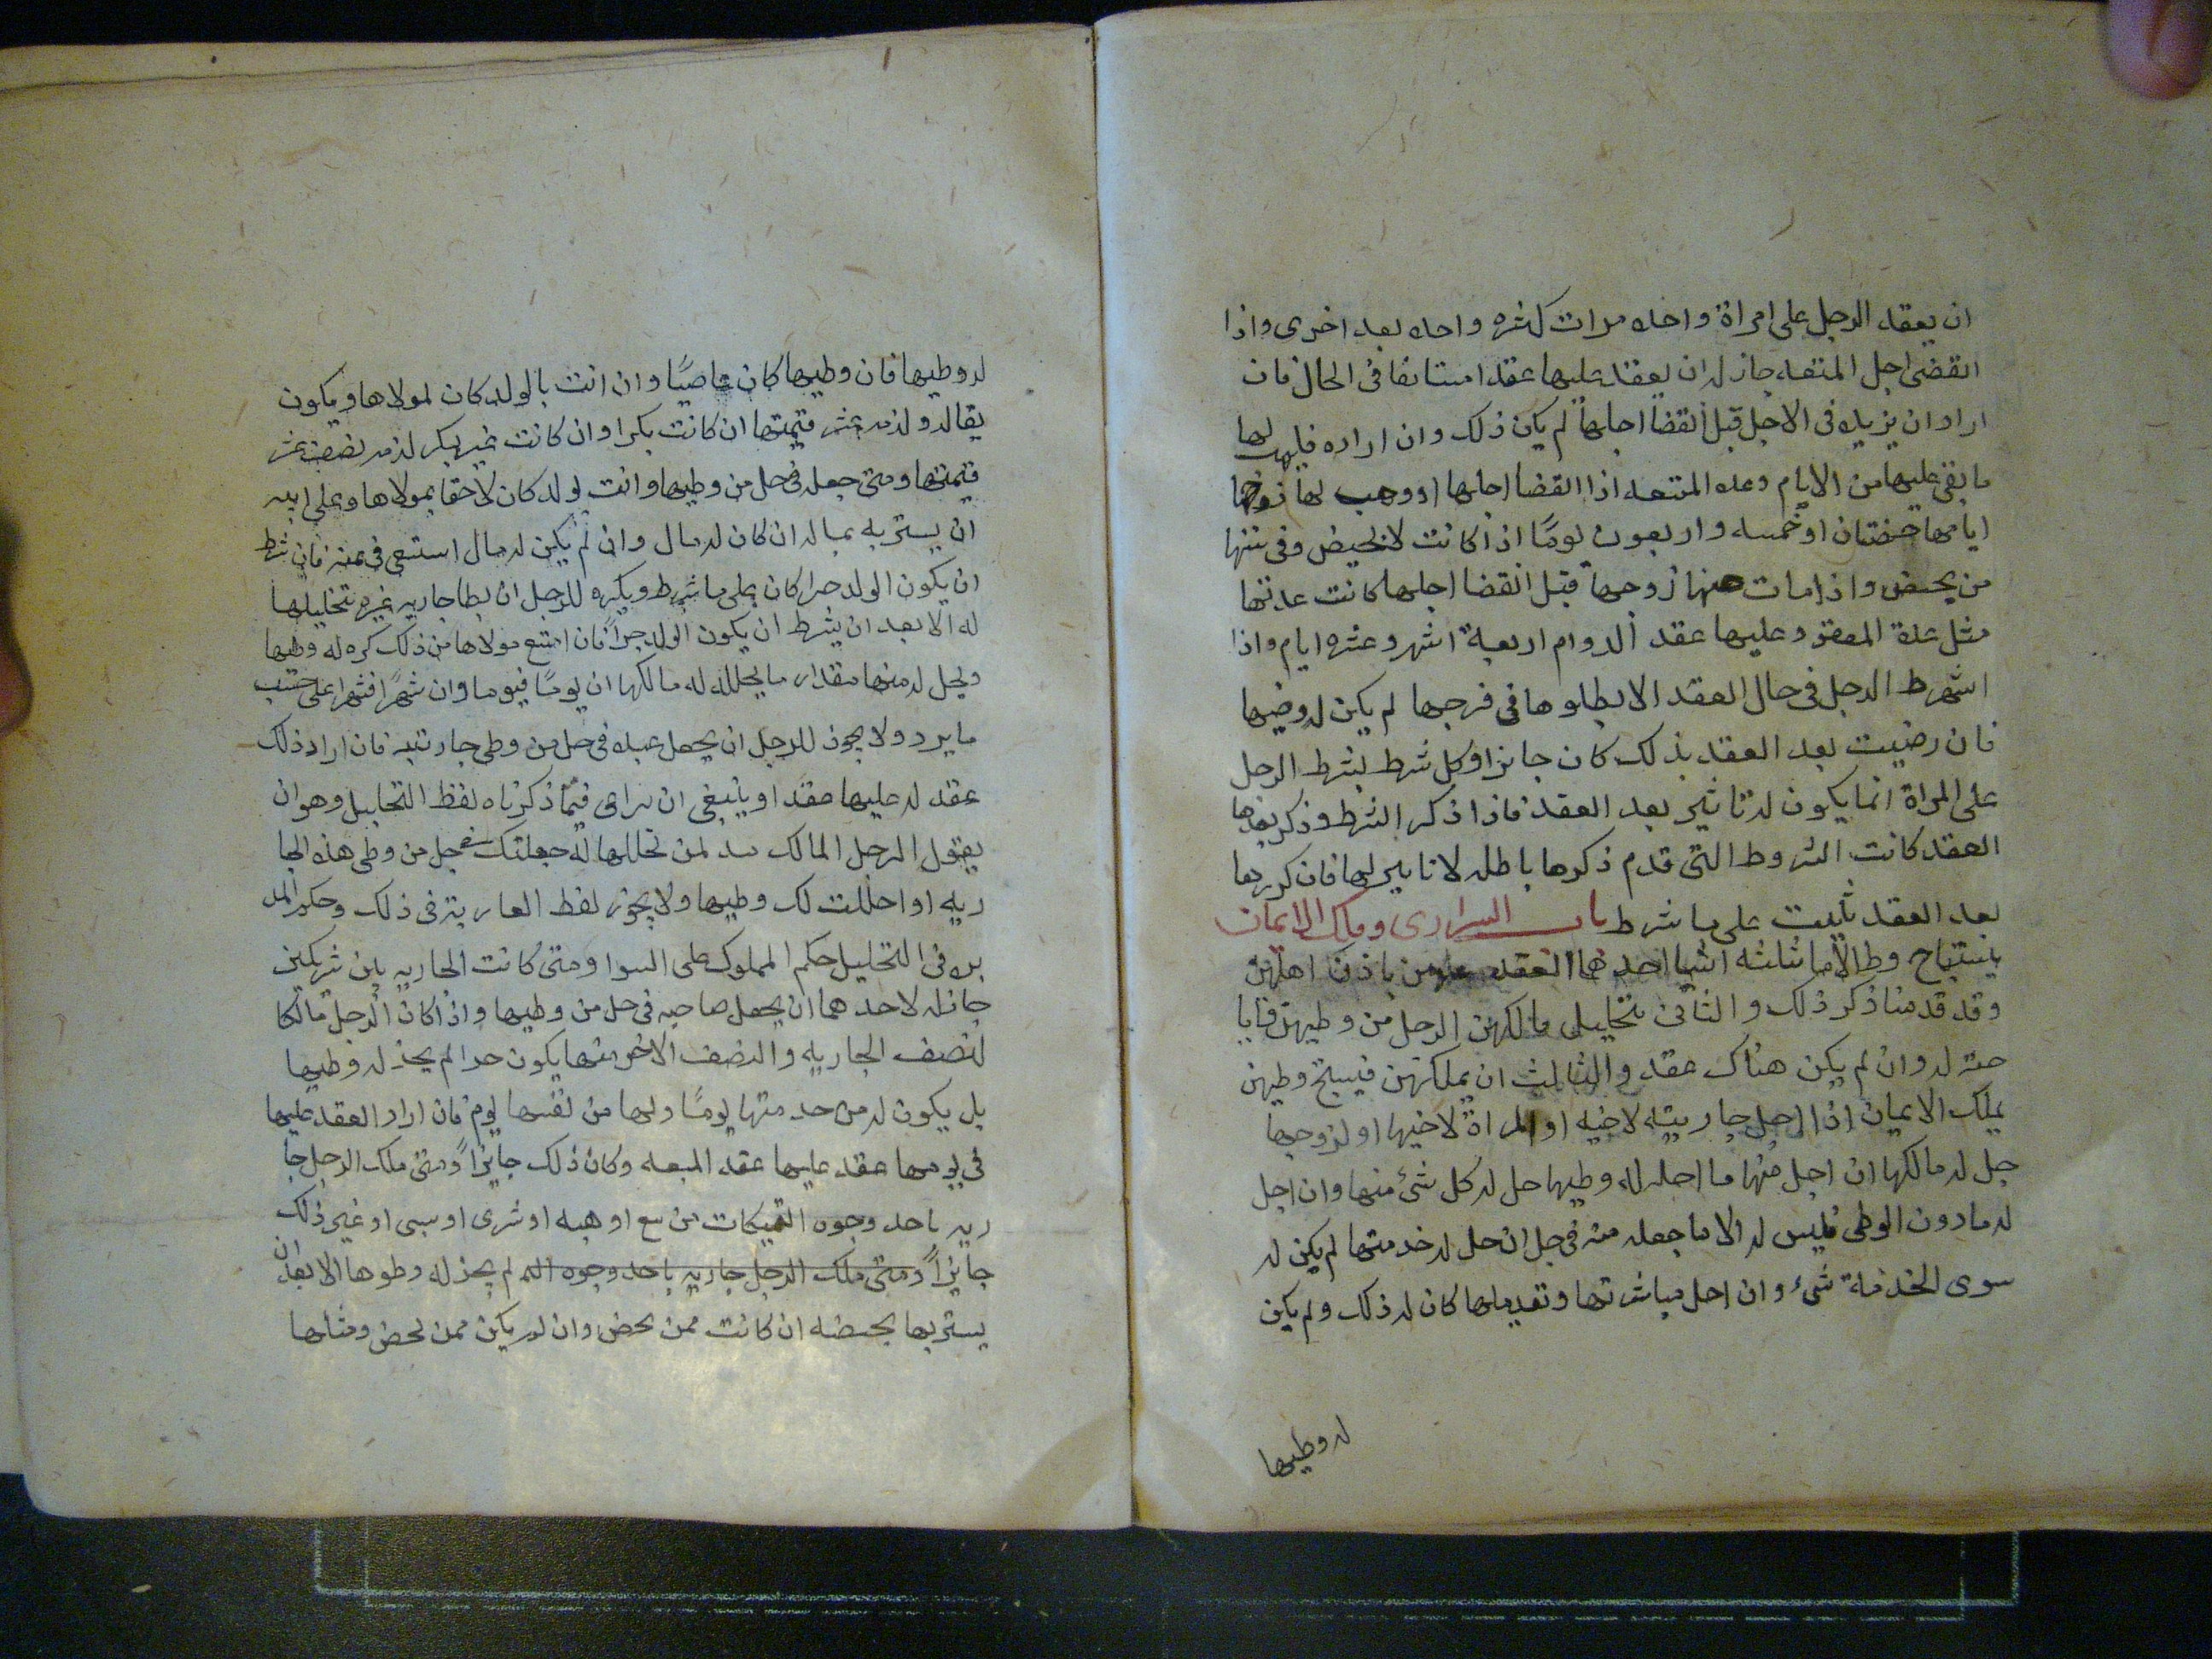 ان يعقد الرجل على امراة واحده مرات كثيره واحده بعد اخرى واذا
انقضى اجل المتعه جاز له ان يعقد عليها عقدا مستانفا فى الحال فان
اراد ان يزيده فى الاجل قبل انقضا اجلها لم يكن ذلك وان اراده فليهب لها
ما بقى عليها من الايام وعده المتعه اذا انقضا اجلها او وهب لها زوجها
ايامها حيضتان او خمسه واربعون يومًا اذا كانت لا تحيض وفى سنها
من يحيض واذا مات عنها زوجها قبل انقضا اجلها كانت عدتها
مثل عدة المعقود عليها عقد الدوام اربعة اشهر وعشره ايام واذا
اشترط الرجل فى حال العقد الا يطاوها فى فرجها لم يكن له وطيها
فان رضيت بعد العقد بذلك كان جائزا وكل شرط يشرط الرجل
على المراة انما يكون له تاثير بعد العقد فاذا ذكر الشرط وذكر بعدها
العقد كانت الشروط التى قدم ذكرها باطله لا تاثير لها فان كررها
بعد العقد ثبتت على ما شرط باب السرارى وملك الايمان
يستباح وطا الاما بثلثه اشيا احدها العقد عليهن باذن اهلهن
وقد قدمنا ذكر ذلك والثانى بتحليل مالكهن الرجل من وطيهن واباـ
حته له وان لم يكن هناك عقد والثالث ان يملكهن فيستبيح وطيهن
بملك الايمان اذا احل الرجل جاريته لاخيه او المراة لاخيها او لزوجها
حل له مالكها ان احل منها ما احله له وطيها حل له كل شىء منها وان احل
له ما دون الوطى فليس له الا ما جعله منه فى حل ان حل له خدمتها لم يكن له
سوى الخدمة شىء وان احل مباشرتها وتقبيلها كان له ذلك ولم يكن
له وطيها
له وطيها فان وطيها كان عاصيًا وان اتت بالولد كان لمولاها ويكون
يقالد ولزمه عشر قيمتها ان كانت بكرا وان كانت غير بكر لزمه نصف عشر
قيمتها ومتى جعله فى حل من وطيها واتت بولد كان لاحقا بمولاها وعلى ابيه
ان يشتريه بماله ان كان له مال وان لم يكن له مال استسعى فى ثمنه فان شرط
ان يكون الولد حرا كان على ما شرط ويكره للرجل ان يطا جاريه غيره بتحليلها
له الا بعد ان يشرط ان يكون الولد حرًا فان امتنع مولاها من ذلك كره له وطيها
ويحل له منها مقدار ما يحلله له مالكها ان يومًا فيوما وان شهرًا فشهرا على حسب
ما يريد ولا يجوز للرجل ان يجعل عبده فى حل من وطى جاريته فان اراد ذلك
عقد له عليها عقدا وينبغى ان يراعى فيما ذكرناه لفظ التحليل وهو ان
يقول الرجل المالك لمن تحللها له جعلتك فى حل من وطى هذه الجا
ريه او احللت لك وطيها ولا يجوز لفظ العاريه فى ذلك وحكم المد
بره فى التحليل حكم المملوك على السوا ومتى كانت الجاريه بين شريكين
جاز له لاحدهما ان يجعل صاحبه فى حل من وطيها واذا كان الرجل مالكا
لنصف الجاريه والنصف الاخر منها يكون حرا لم يجز له وطيها
بل يكون له من خدمتها يومًا ولها من نفسها يوم فان اراد العقد عليها
فى يومها عقد عليها عقد المتعه وكان ذلك جايزًا ومتى ملك الرجل جا
ريه باحد وجوه التمليكات من بيع او هبه او شرى او سبى او غير ذلك
جايزًا ومتى ملك الرجل جاريه باحد وجوه الله لم يجز له وطوها الا بعد ان
يستبريها بحيضه ان كانت ممن تحيض وان لم يكن ممن تحيض ومثلها